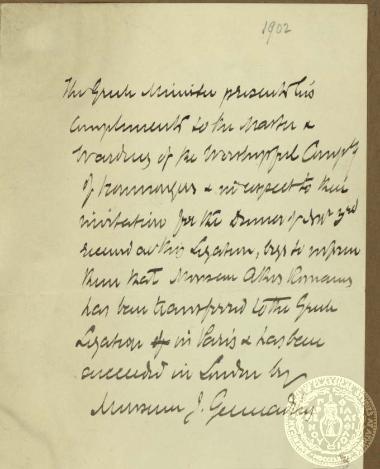 1902
The Greek Minister presents his
compliments to the Master &
Wardens of the Worshipful Compy
of Ironmongers & in respect to their
invitation for the Dinner of 3rd
received at this Legation, begs to inform
them that Monsieur Athos Romanos
has been transferred to the Greek
Legation in Paris & has been
succeeded in London by
Monsieur J. Gennadius